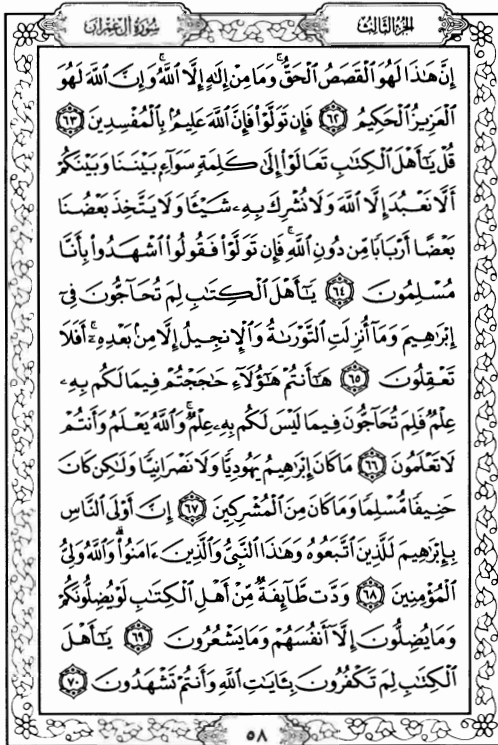 سُورَةُ آلِ عِمْرَانَ
الجُزءُ الثَّالِثُ
إِنَّ هَٰذَا لَهُوَ ٱلْقَصَصُ ٱلْحَقُّ ۚ وَمَا مِنْ إِلَٰهٍ إِلَّا ٱللَّهُ ۚ وَإِنَّ ٱللَّهَ لَهُوَ
ٱلْعَزِيزُ ٱلْحَكِيمُ ٦٢ فَإِن تَوَلَّوْا۟ فَإِنَّ ٱللَّهَ عَلِيمٌۢ بِٱلْمُفْسِدِينَ ٦٣
قُلْ يَٰٓأَهْلَ ٱلْكِتَٰبِ تَعَالَوْا۟ إِلَىٰ كَلِمَةٍ سَوَآءٍۭ بَيْنَنَا وَبَيْنَكُمْ
أَلَّا نَعْبُدَ إِلَّا ٱللَّهَ وَلَا نُشْرِكَ بِهِۦ شَيْـًٔا وَلَا يَتَّخِذَ بَعْضُنَا
بَعْضًا أَرْبَابًا مِّن دُونِ ٱللَّهِ ۚ فَإِن تَوَلَّوْا۟ فَقُولُوا۟ ٱشْهَدُوا۟ بِأَنَّا
مُسْلِمُونَ ٦٤ يَٰٓأَهْلَ ٱلْكِتَٰبِ لِمَ تُحَآجُّونَ فِىٓ
إِبْرَٰهِيمَ وَمَآ أُنزِلَتِ ٱلتَّوْرَىٰةُ وَٱلْإِنجِيلُ إِلَّا مِنۢ بَعْدِهِۦٓ ۚ أَفَلَا
تَعْقِلُونَ ٦٥ هَٰٓأَنتُمْ هَٰٓؤُلَآءِ حَٰجَجْتُمْ فِيمَا لَكُم بِهِۦ
عِلْمٌ فَلِمَ تُحَآجُّونَ فِيمَا لَيْسَ لَكُم بِهِۦ عِلْمٌ ۚ وَٱللَّهُ يَعْلَمُ وَأَنتُمْ
لَا تَعْلَمُونَ ٦٦ مَا كَانَ إِبْرَٰهِيمُ يَهُودِيًّا وَلَا نَصْرَانِيًّا وَلَٰكِن كَانَ
حَنِيفًا مُّسْلِمًا وَمَا كَانَ مِنَ ٱلْمُشْرِكِينَ ٦٧ إِنَّ أَوْلَى ٱلنَّاسِ
بِإِبْرَٰهِيمَ لَلَّذِينَ ٱتَّبَعُوهُ وَهَٰذَا ٱلنَّبِىُّ وَٱلَّذِينَ ءَامَنُوا۟ ۗ وَٱللَّهُ وَلِىُّ
ٱلْمُؤْمِنِينَ ٦٨ وَدَّت طَّآئِفَةٌ مِّنْ أَهْلِ ٱلْكِتَٰبِ لَوْ يُضِلُّونَكُمْ
وَمَا يُضِلُّونَ إِلَّآ أَنفُسَهُمْ وَمَا يَشْعُرُونَ ٦٩ يَٰٓأَهْلَ
ٱلْكِتَٰبِ لِمَ تَكْفُرُونَ بِـَٔايَٰتِ ٱللَّهِ وَأَنتُمْ تَشْهَدُونَ ٧٠
٥٨